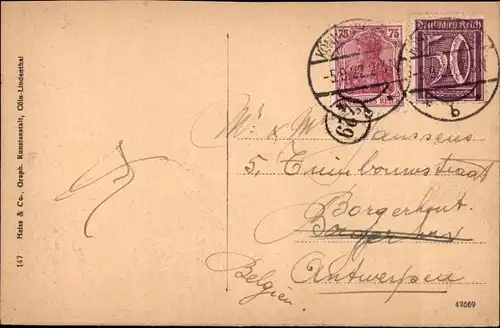 147 Heiss & Co., Graph. Kunstanstalt, Cöln-Lindenthal
75 75
Deutsches Reich
50
-5.9.22.2
b
29
Mr & M Janssens
5, Tuinbouwstraat
Borgerhout.
Antwerpen
Belgien
42669